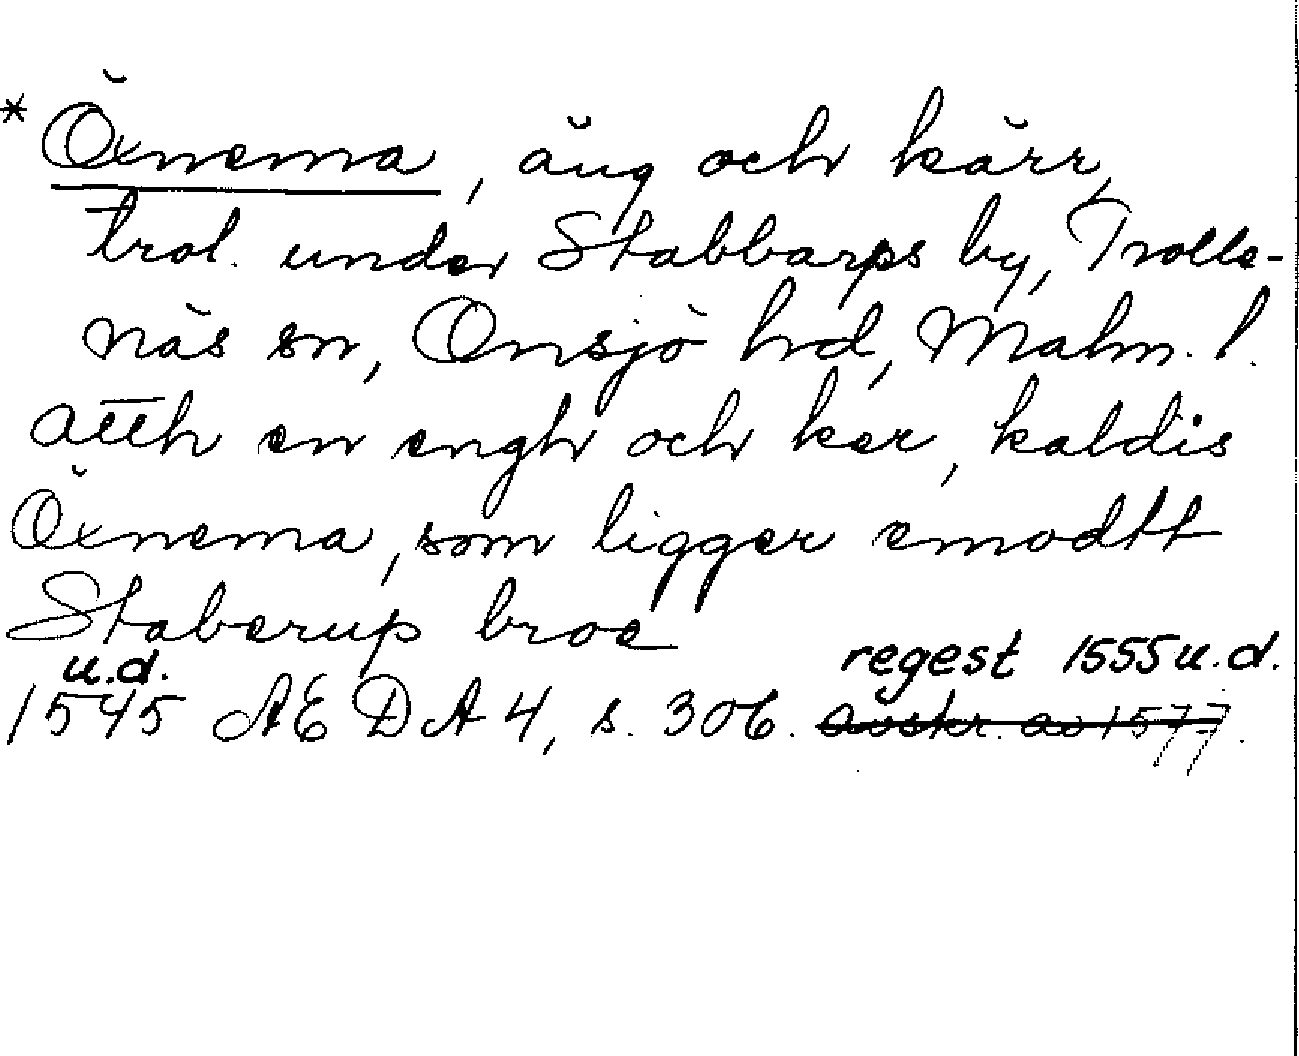 * Öxnema, äng och kärr,
trol. under Stabbarps by, Trolle-
näs sn, Onsjö hrd, Malm. l.
Atth en engh och ker, kaldis
Öxnema, som ligger emodtt
Staberup broe
u.d. regest 1555 u.d.
1545 AEDA 4, s. 306. avskr. av 1577.